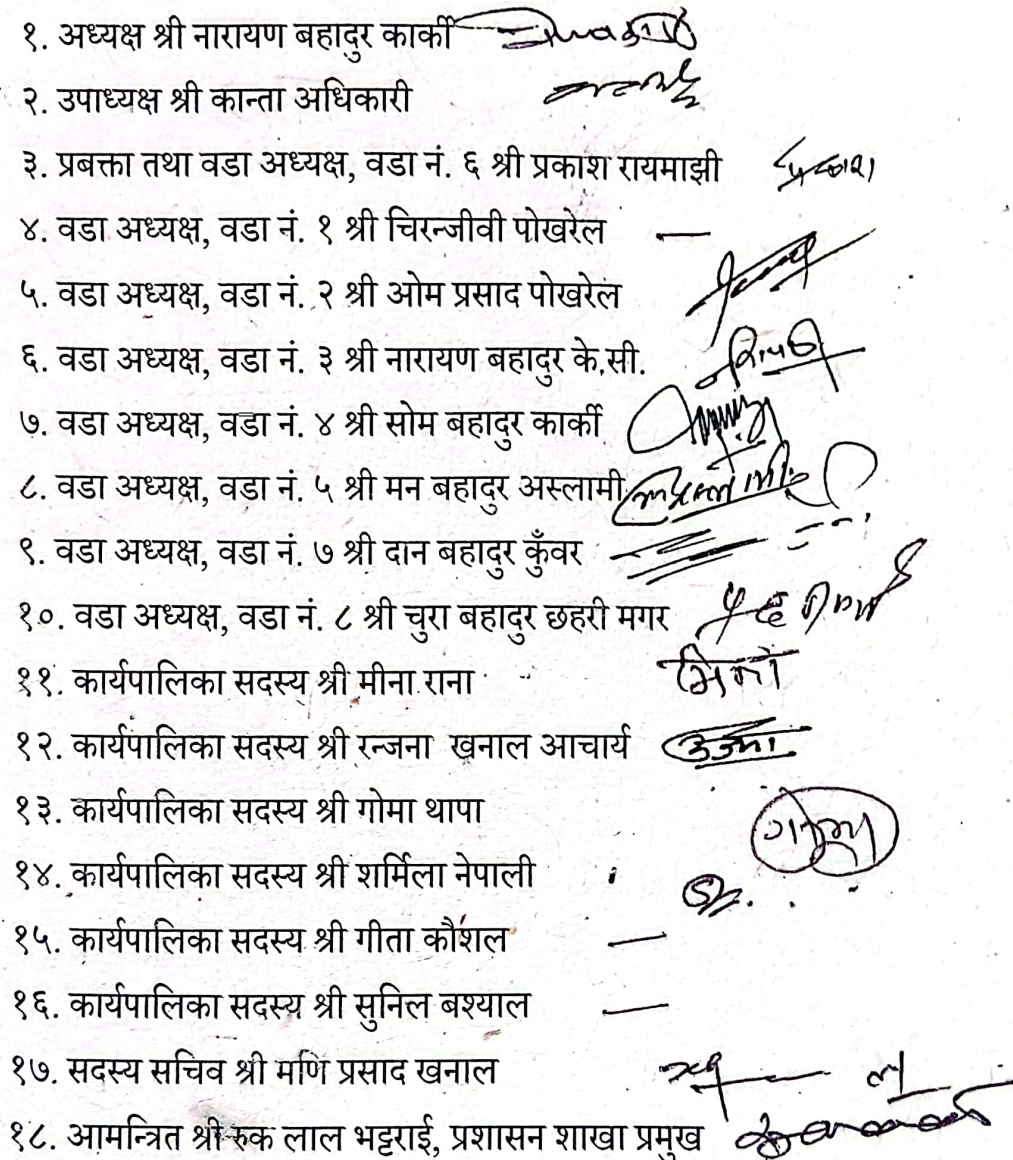 १. अध्यक्ष श्री नारायण बहादुर कार्की
२. उपाध्यक्ष श्री कान्ता अधिकारी
३. प्रबक्ता तथा वडा अध्यक्ष, वडा नं. ६ श्री प्रकाश रायमाझी प्रकाश
४. वडा अध्यक्ष, वडा नं. १ श्री चिरन्जीवी पोखरेल —
५. वडा अध्यक्ष, वडा नं. २ श्री ओम प्रसाद पोखरेल
६. वडा अध्यक्ष, वडा नं. ३ श्री नारायण बहादुर के.सी.
७. वडा अध्यक्ष, वडा नं. ४ श्री सोम बहादुर कार्की
८. वडा अध्यक्ष, वडा नं. ५ श्री मन बहादुर अस्लामी
९. वडा अध्यक्ष, वडा नं. ७ श्री दान बहादुर कुँवर
१०. वडा अध्यक्ष, वडा नं. ८ श्री चुरा बहादुर छहरी मगर
११. कार्यपालिका सदस्य श्री मीना राना
१२. कार्यपालिका सदस्य श्री रन्जना खनाल आचार्य
१३. कार्यपालिका सदस्य श्री गोमा थापा
१४. कार्यपालिका सदस्य श्री शर्मिला नेपाली
१५. कार्यपालिका सदस्य श्री गीता कौशल —
१६. कार्यपालिका सदस्य श्री सुनिल बश्याल —
१७. सदस्य सचिव श्री मणि प्रसाद खनाल
१८. आमन्त्रित श्री रुक लाल भट्टराई, प्रशासन शाखा प्रमुख